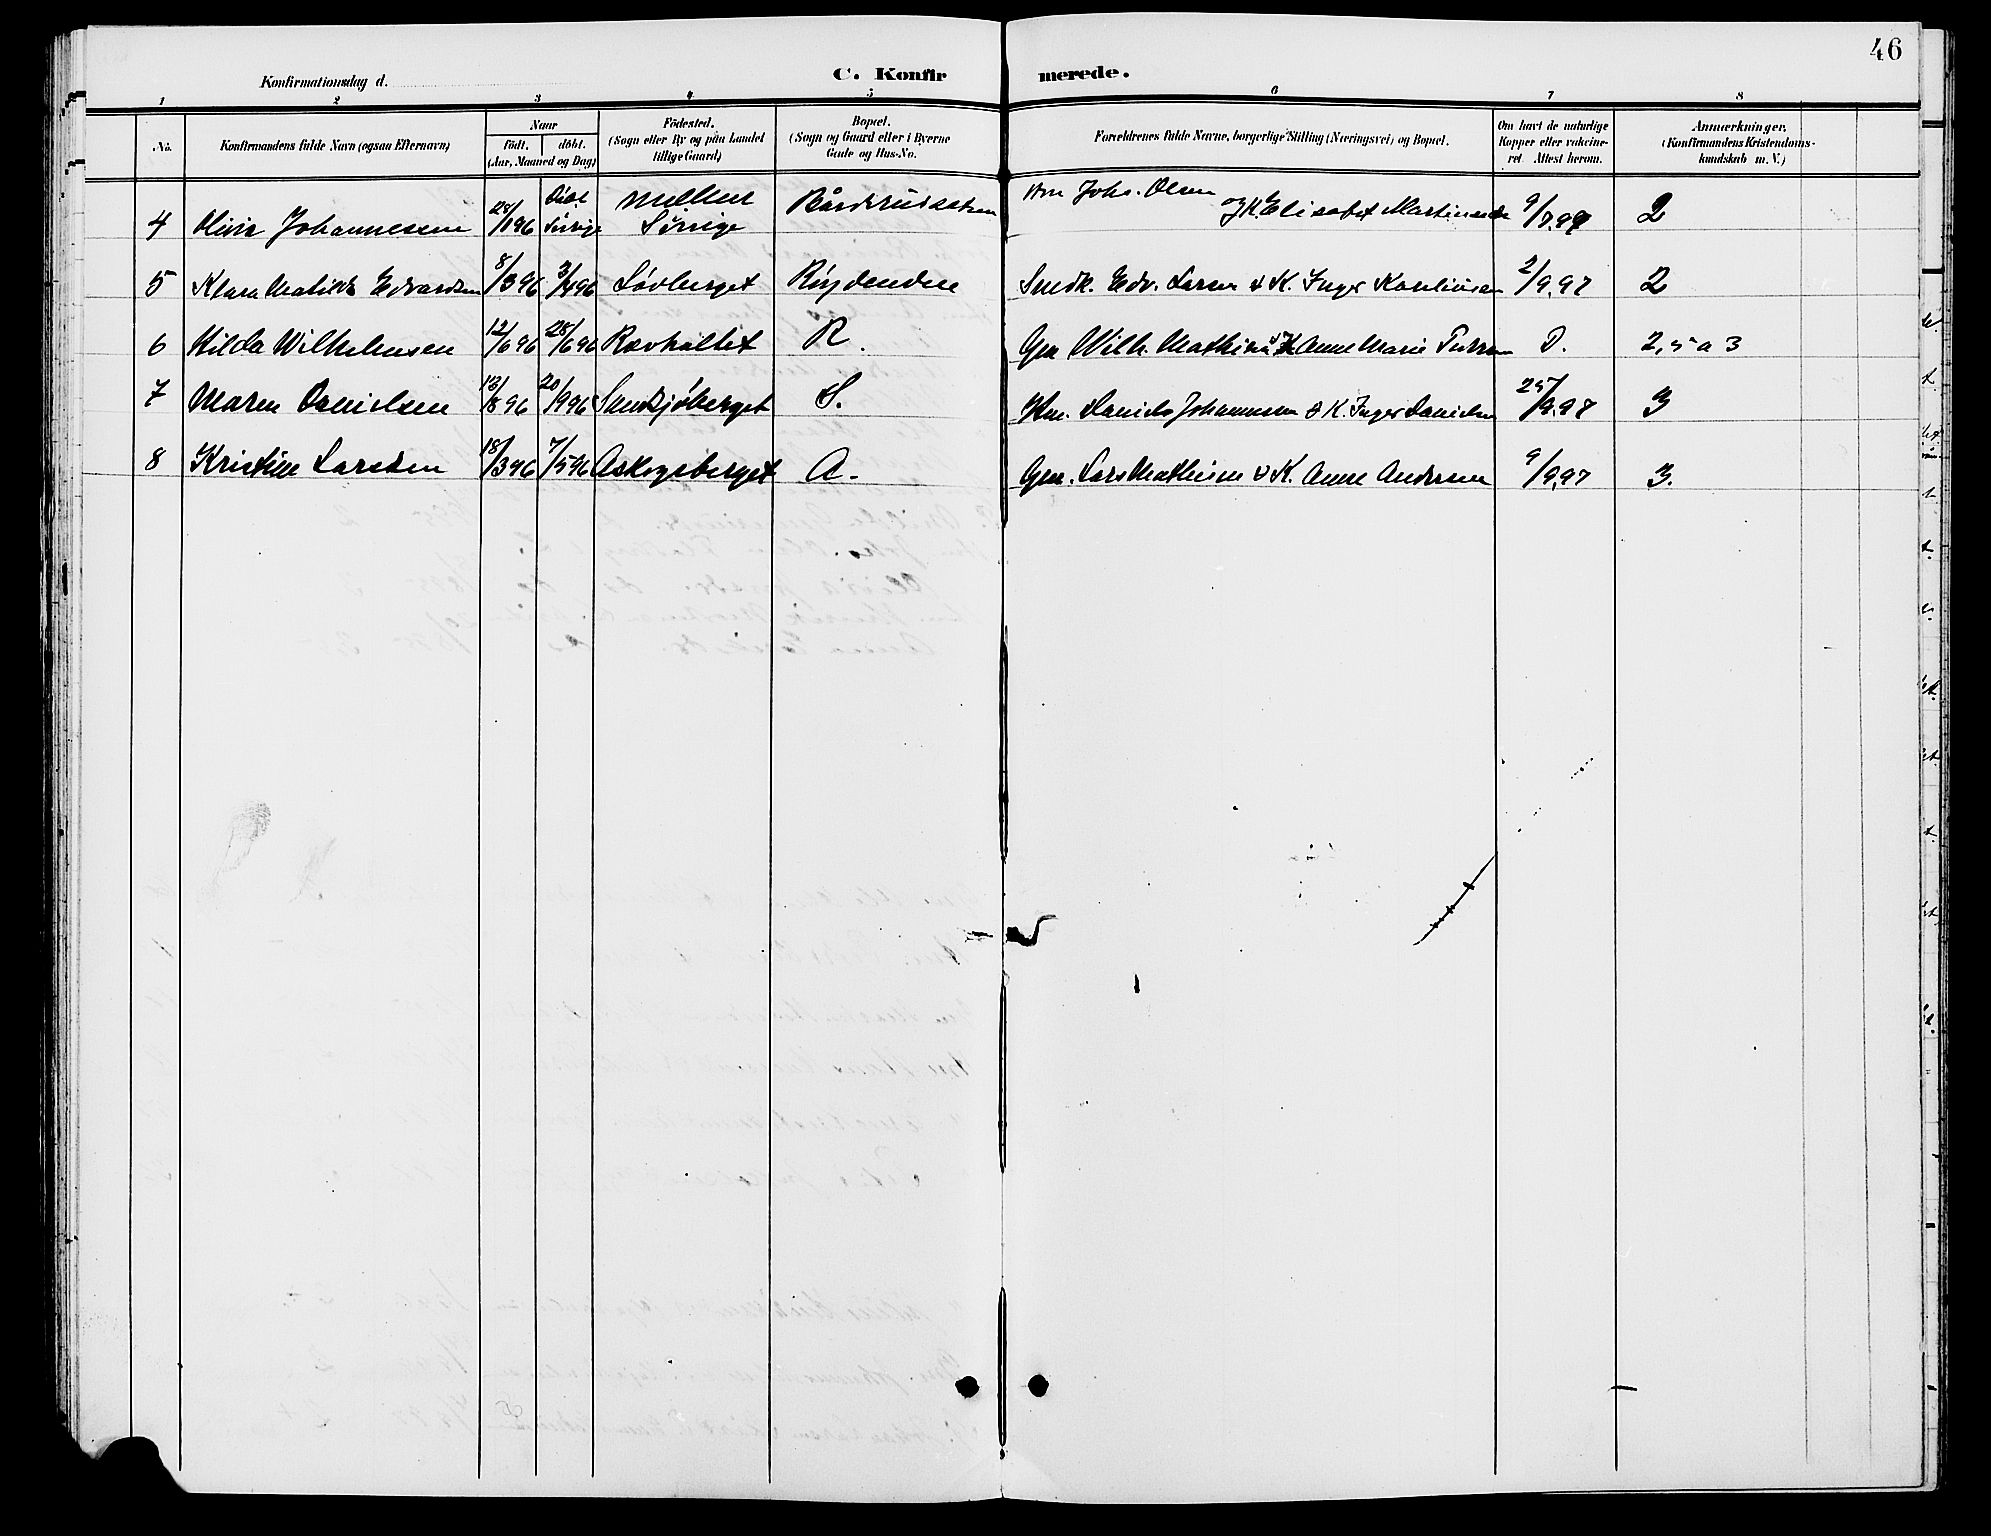 46
Konfirmationsdag d.
C. Konfirmerede.
1 2 3 4 5 6 7 8
No. Konfirmandens fulde Navn (ogsaa Efternavn) Naar födt. döbt. (Aar, Maaned og Dag) Födested. (Sogn eller By og paa Landet tillige Gaard) Bopæl. (Sogn og Gaard eller i Byerne Gade og Hus-No. Forældrenes fulde Navne, borgerlige Stilling (Næringsvei) og Bopæl. Om havt de naturlige Kopper eller vakcineret. Attest herom. Anmærkninger. (Konfirmandens Kristendomskundskab m. V.)
4 Johannessen 28/1 96 Johs. Olsen og K. Elisabet 2
5 Klara Matilde Edvardsen 8/3 96 3/4 96 Løvberget Røgdenden Smdk. Edv. Larsen & K. Inger 2/9.97 2
6 Hilda Wilhelmsen 12/6 96 28/6 96 Ravholtet R. Gm Wilh. Mathis & K Anne Marie D. 2,5 a 3
7 Maren Danielsen 13/8 96 20/9 96 S. Daniels Johannessen & K. Inger Danielsen 25/9.98 3
8 Kristine Larsen 18/3 96 7/5 96 Askogsberget A. Gm. Lars Mathisen & K. Anne Andersen 9/9.97 3.